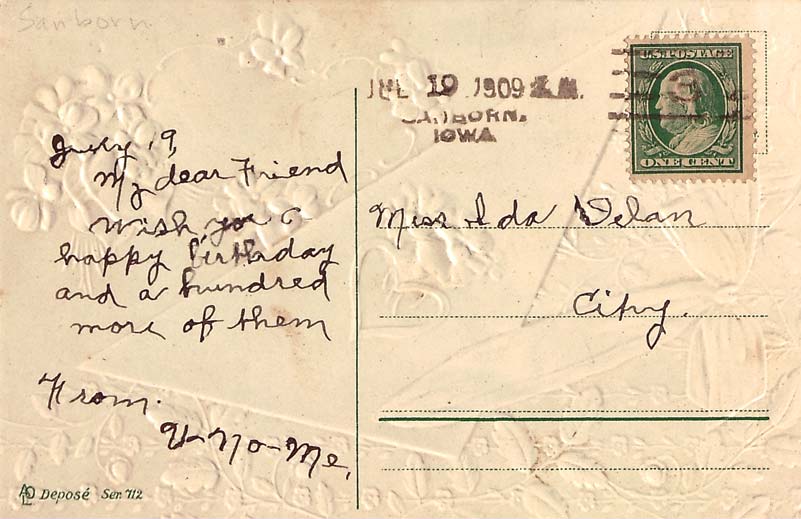 Sanborn
July 19,
My dear Friend
Wish you a
happy birthday
and a hundred
more of them
From.
U-No-Me,
Deposé Ser. 712
JUL 19 1909 A.M.
SANBORN,
IOWA
U.S. POSTAGE
ONE CENT
Miss Ida
City.